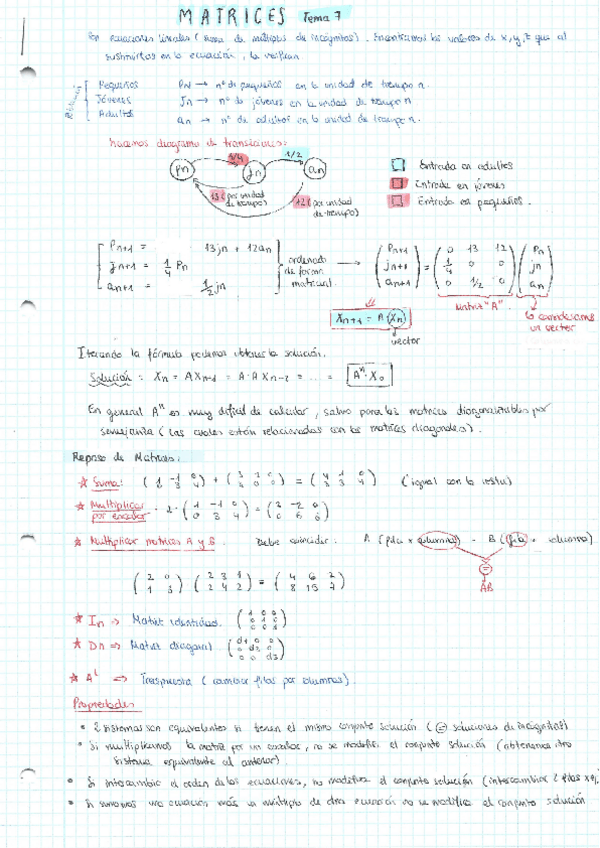 MATRICES Tema 7
Son ecuaciones lineales (suma de múltiplos de incógnitas). Encontramos los valores de x, y, z que al
sustituirlos en la ecuación, la verifican
Pequeños Pn → nº de pequeños en la unidad de tiempo n.
Jóvenes Jn → nº de jóvenes en la unidad de tiempo n
Adultos an → nº de adultos en la unidad de tiempo n.
hacemos diagrama de transiciones:
1/4 1/2
Pn Jn an
13 (por unidad de tiempo) 12 (por unidad de tiempo)
Entrada en adultos
Entrada en jóvenes
Entrada en pequeños.
Pn+1 = 13jn + 12an
jn+1 = 1/4 Pn
an+1 = 1/2 jn
ordenado de forma matricial
(Pn+1 jn+1 an+1) = (0 13 12; 1/4 0 0; 0 1/2 0) (Pn jn an)
matriz "A".
lo consideramos un vector
Xn+1 = A(Xn)
vector
Iterando la fórmula podemos obtener la solución.
Solución: Xn = AXn-1 = A·A Xn-2 = ... = Aⁿ·X₀
En general Aⁿ es muy difícil de calcular, salvo para las matrices diagonalizables por
semejanza (las cuales están relacionadas con las matrices diagonales).
Repaso de Matrices:
★ Suma: (igual con la resta)
★ Multiplicar por escalar · 2·(1 -1 0; 0 3 4) = (2 -2 0; 0 6 8)
★ Multiplicar matrices A y B. Debe coincidir: A (fila x columnas) - B (fila x columna)
=
AB
(2 0; 1 3) (2 3 1; 2 4 2) = (4 6 2; 8 15 7)
★ In ⇒ Matriz identidad. (1 0 0; 0 1 0; 0 0 1)
★ Dn ⇒ Matriz diagonal (d1 0 0; 0 d2 0; 0 0 d3)
★ Aᵗ ⇒ Traspuesta (cambiar filas por columnas).
Propiedades
• 2 sistemas son equivalentes si tienen el mismo conjunto solución (= soluciones de incógnitas)
• Si multiplicamos la matriz por un escalar, no se modifica el conjunto solución (obtenemos otro
sistema equivalente al anterior).
• Si intercambio el orden de las ecuaciones, no modifica el conjunto solución (intercambiar 2 filas
• Si sumamos una ecuación más un múltiplo de otra ecuación no se modifica el conjunto solución